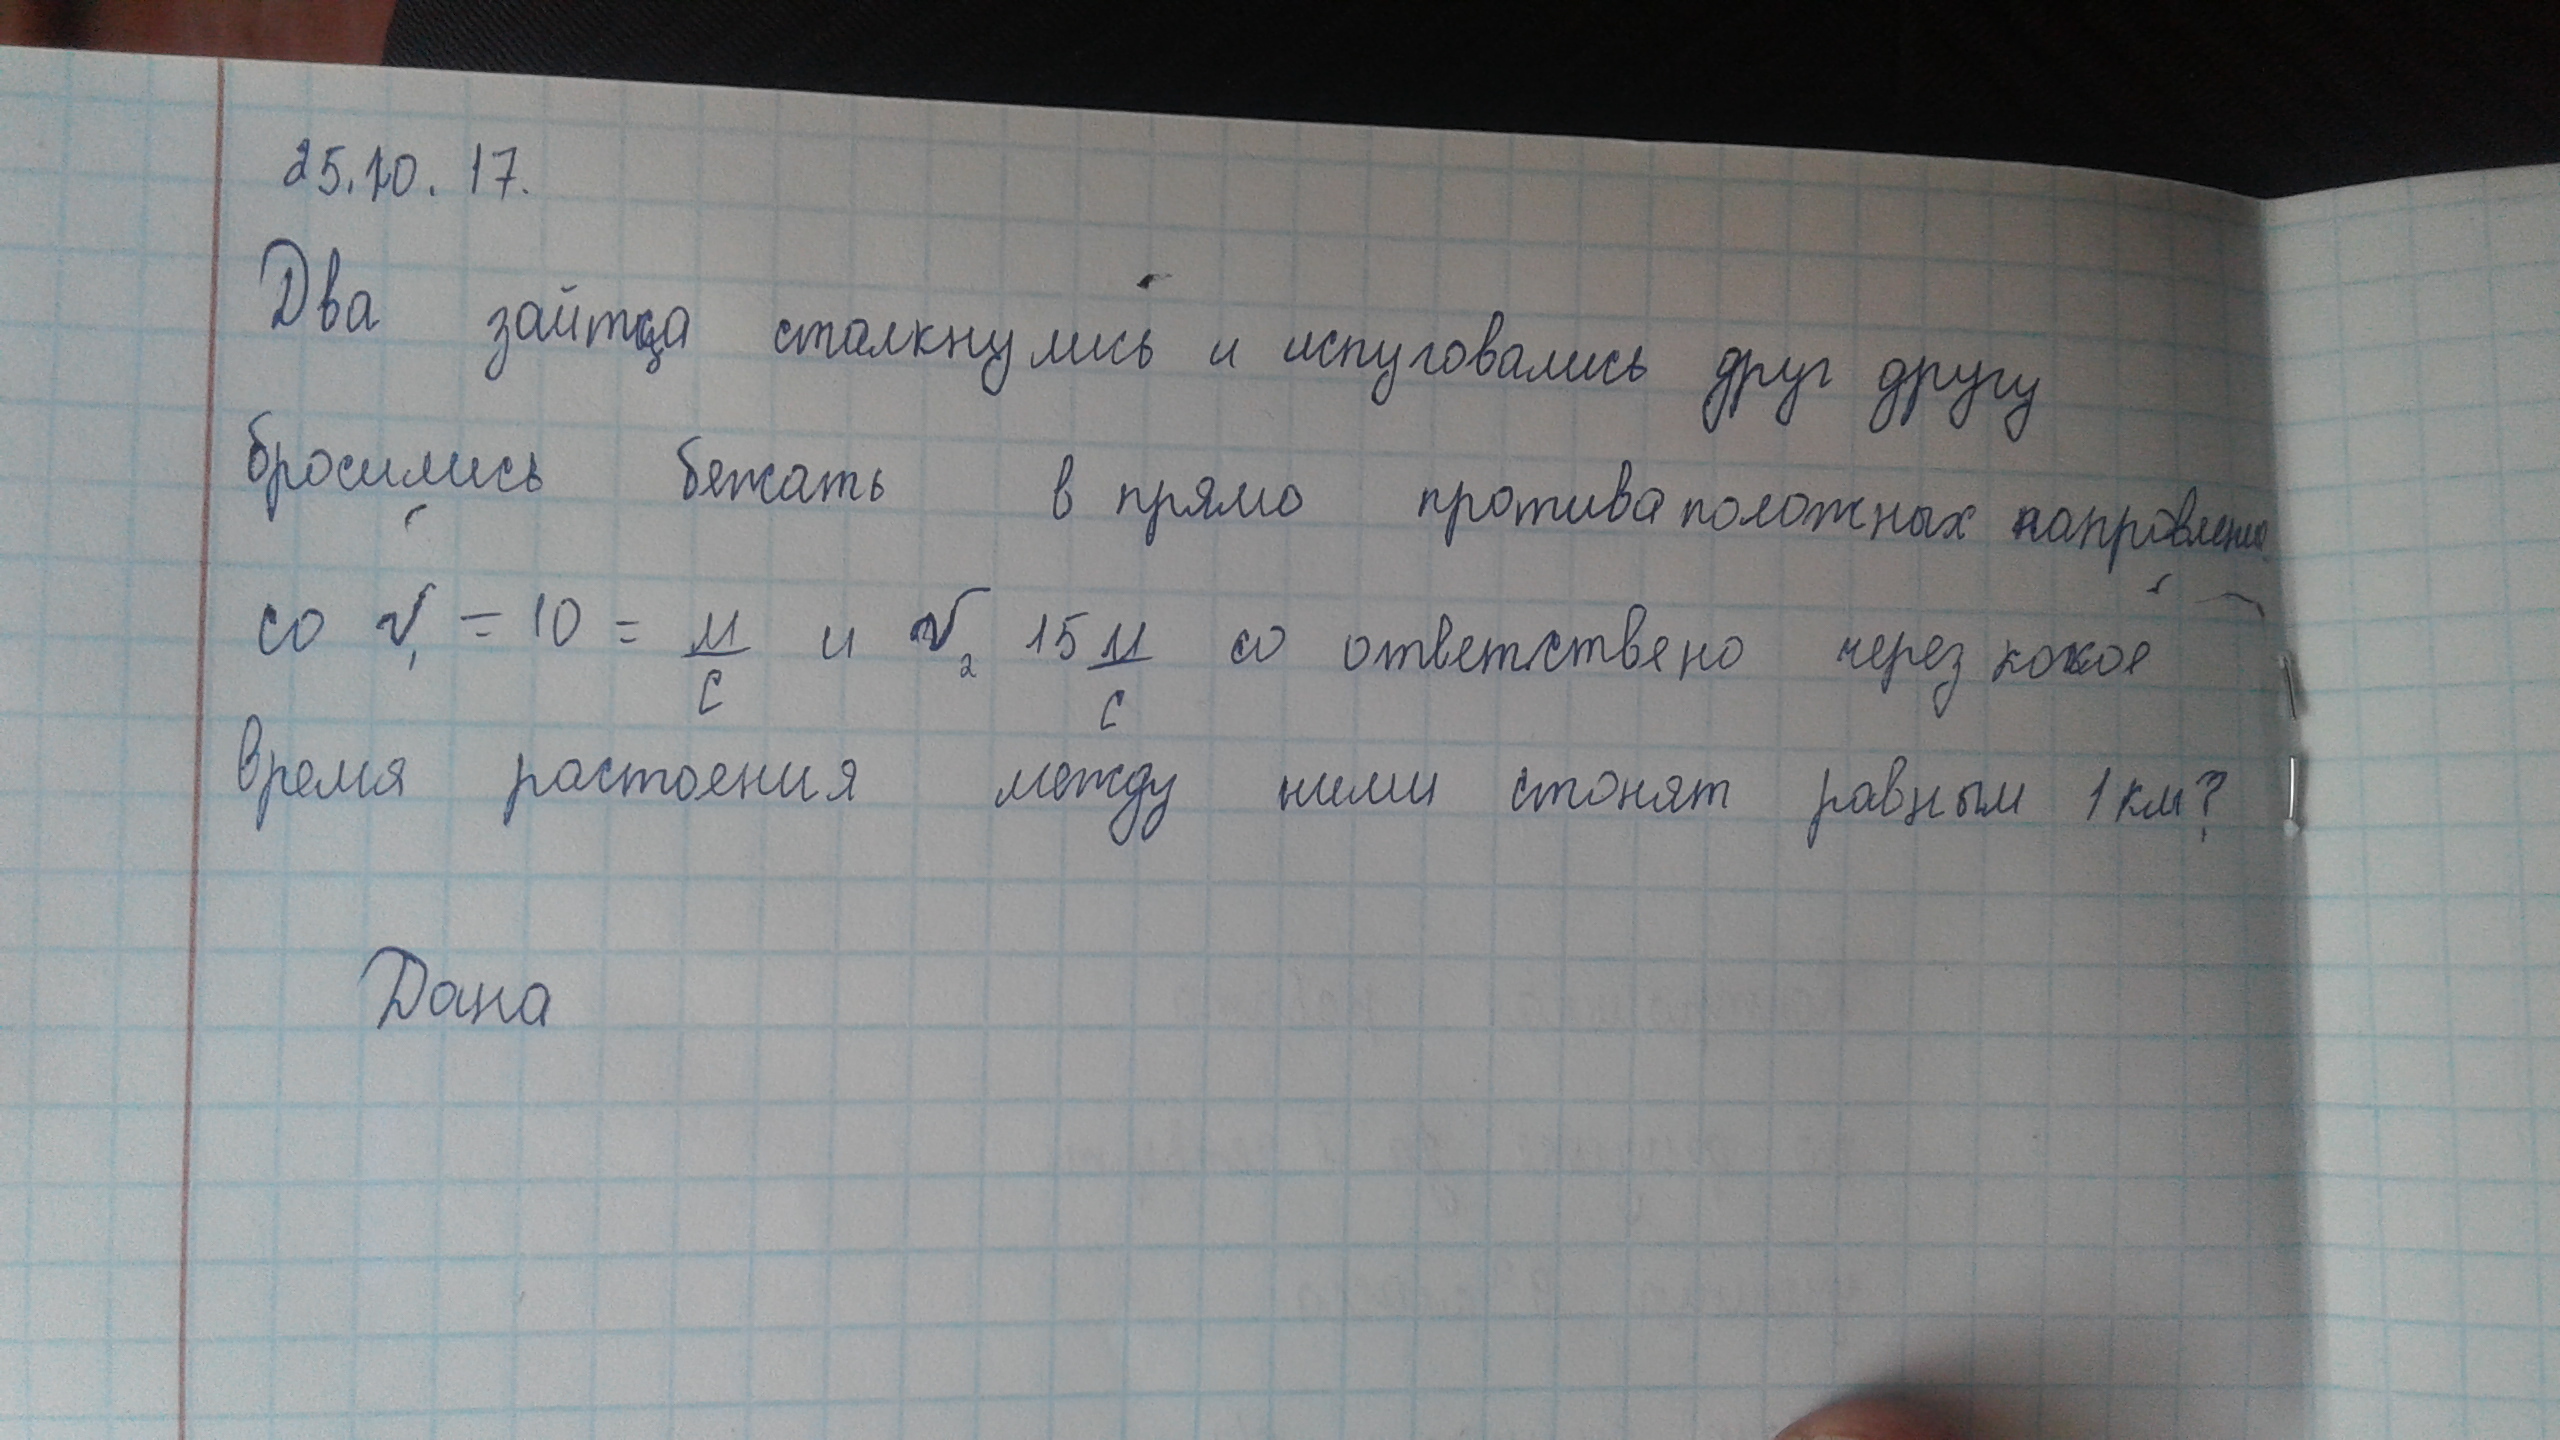 25.10.17.
Два зайтца сталкнулись и испуговались друг другу
бросились бежать в прямо противаположных направлению
со v₁ = 10 = м/с и v₂ 15 м/с со ответствено через кокое
время растоения между ними стонят равным 1 км?
Дана